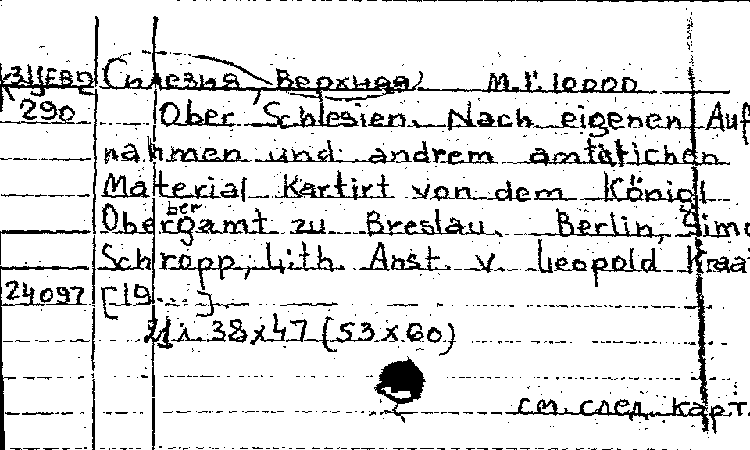 3ЦЕВД Силезия, Верхняя. М.1:10000
290 Ober Schlesien. Nach eigenen Auf
nahmen und andrem amtätichen
Material Kartirt von dem Königl
Oberbergamt zu Breslau. Berlin, Simo
Schropp; Lith. Anst. v. Leopold Kraat
24097 [19...]
21 л. 38x47 (53x60)
см. след. карт.